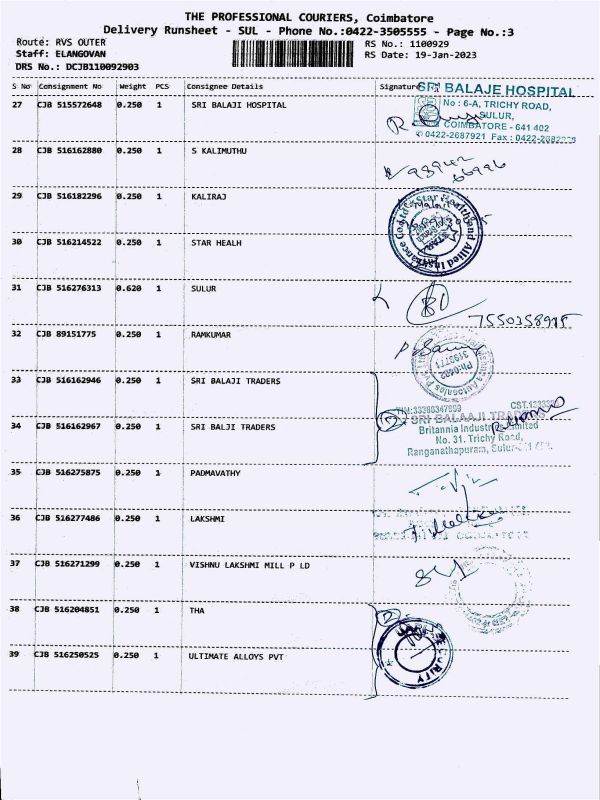 THE PROFESSIONAL COURIERS, Coimbatore
Delivery Runsheet - SUL - Phone No.:0422-3505555 - Page No.:3
Route: RVS OUTER RS No.: 1100929
Staff: ELANGOVAN RS Date: 19-Jan-2023
DRS No.: DCJB110092903
S No Consignment No Weight PCS Consignee Details Signature
SRI BALAJE HOSPITAL
27 CJB 515572648 0.250 1 SRI BALAJI HOSPITAL No : 6-A, TRICHY ROAD,
SULUR,
COIMBATORE - 641 402
0422-2687921 Fax : 0422-
28 CJB 516162880 0.250 1 S KALIMUTHU
98942
66996
29 CJB 516182296 0.250 1 KALIRAJ
Star Health and Allied Insurance Co Ltd
30 CJB 516214522 0.250 1 STAR HEALH
31 CJB 516276313 0.620 1 SULUR
32 CJB 89151775 0.250 1 RAMKUMAR
33 CJB 516162946 0.250 1 SRI BALAJI TRADERS
TIN:33380347609
SRI BALAAJI TRADERS
34 CJB 516162967 0.250 1 SRI BALJI TRADERS 2
Britannia Industries Limited
No. 31. Trichy Road,
Ranganathapuram, Sulur-
35 CJB 516275875 0.250 1 PADMAVATHY
36 CJB 516277486 0.250 1 LAKSHMI
37 CJB 516271299 0.250 1 VISHNU LAKSHMI MILL P LD
38 CJB 516204851 0.250 1 THA 2
39 CJB 516250525 0.250 1 ULTIMATE ALLOYS PVT SECURITY